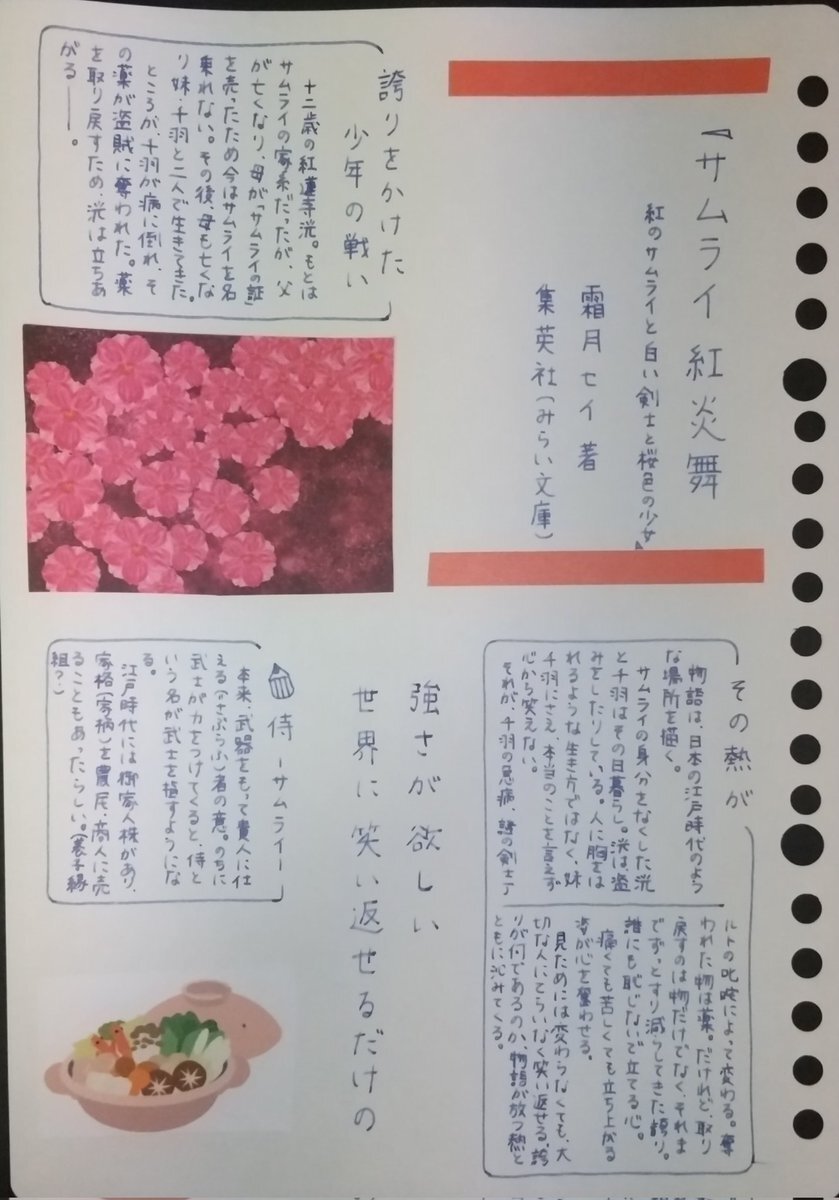 『サムライ 紅炎舞
紅のサムライと白い剣士と桜色の少女』
霜月セイ 著
集英社(みらい文庫)
誇りをかけた
少年の戦い
十二歳の紅蓮寺洸。もとは
サムライの家系だったが、父
が亡くなり、母が「サムライの証」
を売ったため今はサムライを名
乗れない。その後、母も亡くな
り妹・千羽と二人で生きてきた。
ところが、千羽が病に倒れ、そ
の薬が盗賊に奪われた。薬
を取り戻すため、洸は立ちあ
がる――。
その熱が
物語は、日本の江戸時代のよう
な場所を描く。
サムライの身分をなくした洸
と千羽はその日暮らし。洸は、盗
みをしたりしている。人に胸をは
れるような生き方ではなく、妹
千羽にさえ、本当のことを言えず
心から笑えない。
それが、千羽の急病、謎の剣士ア
ルトの叱咤によって変わる。奪
われた物は薬。だけれど、取り
戻すのは物だけでなく、それま
でずっとすり減らしてきた誇り。
誰にも恥じないで立てる心。
痛くても苦しくても立ち上がる
姿が心を奮わせる。
見ためには変わらなくても、大
切な人にてらいなく笑い返せる、誇
りが何であるのか、物語が放つ熱と
ともに沁みてくる。
強さが欲しい
世界に笑い返せるだけの
侍 ーサムライー
本来、武器をもって貴人に仕
える(さぶらふ)者の意。のちに
武士が力をつけてくると、侍と
いう名が武士を指すようにな
る。
江戸時代には御家人株があり、
家格(家柄)を農民・商人に売
ることもあったらしい。(養子縁
組?)